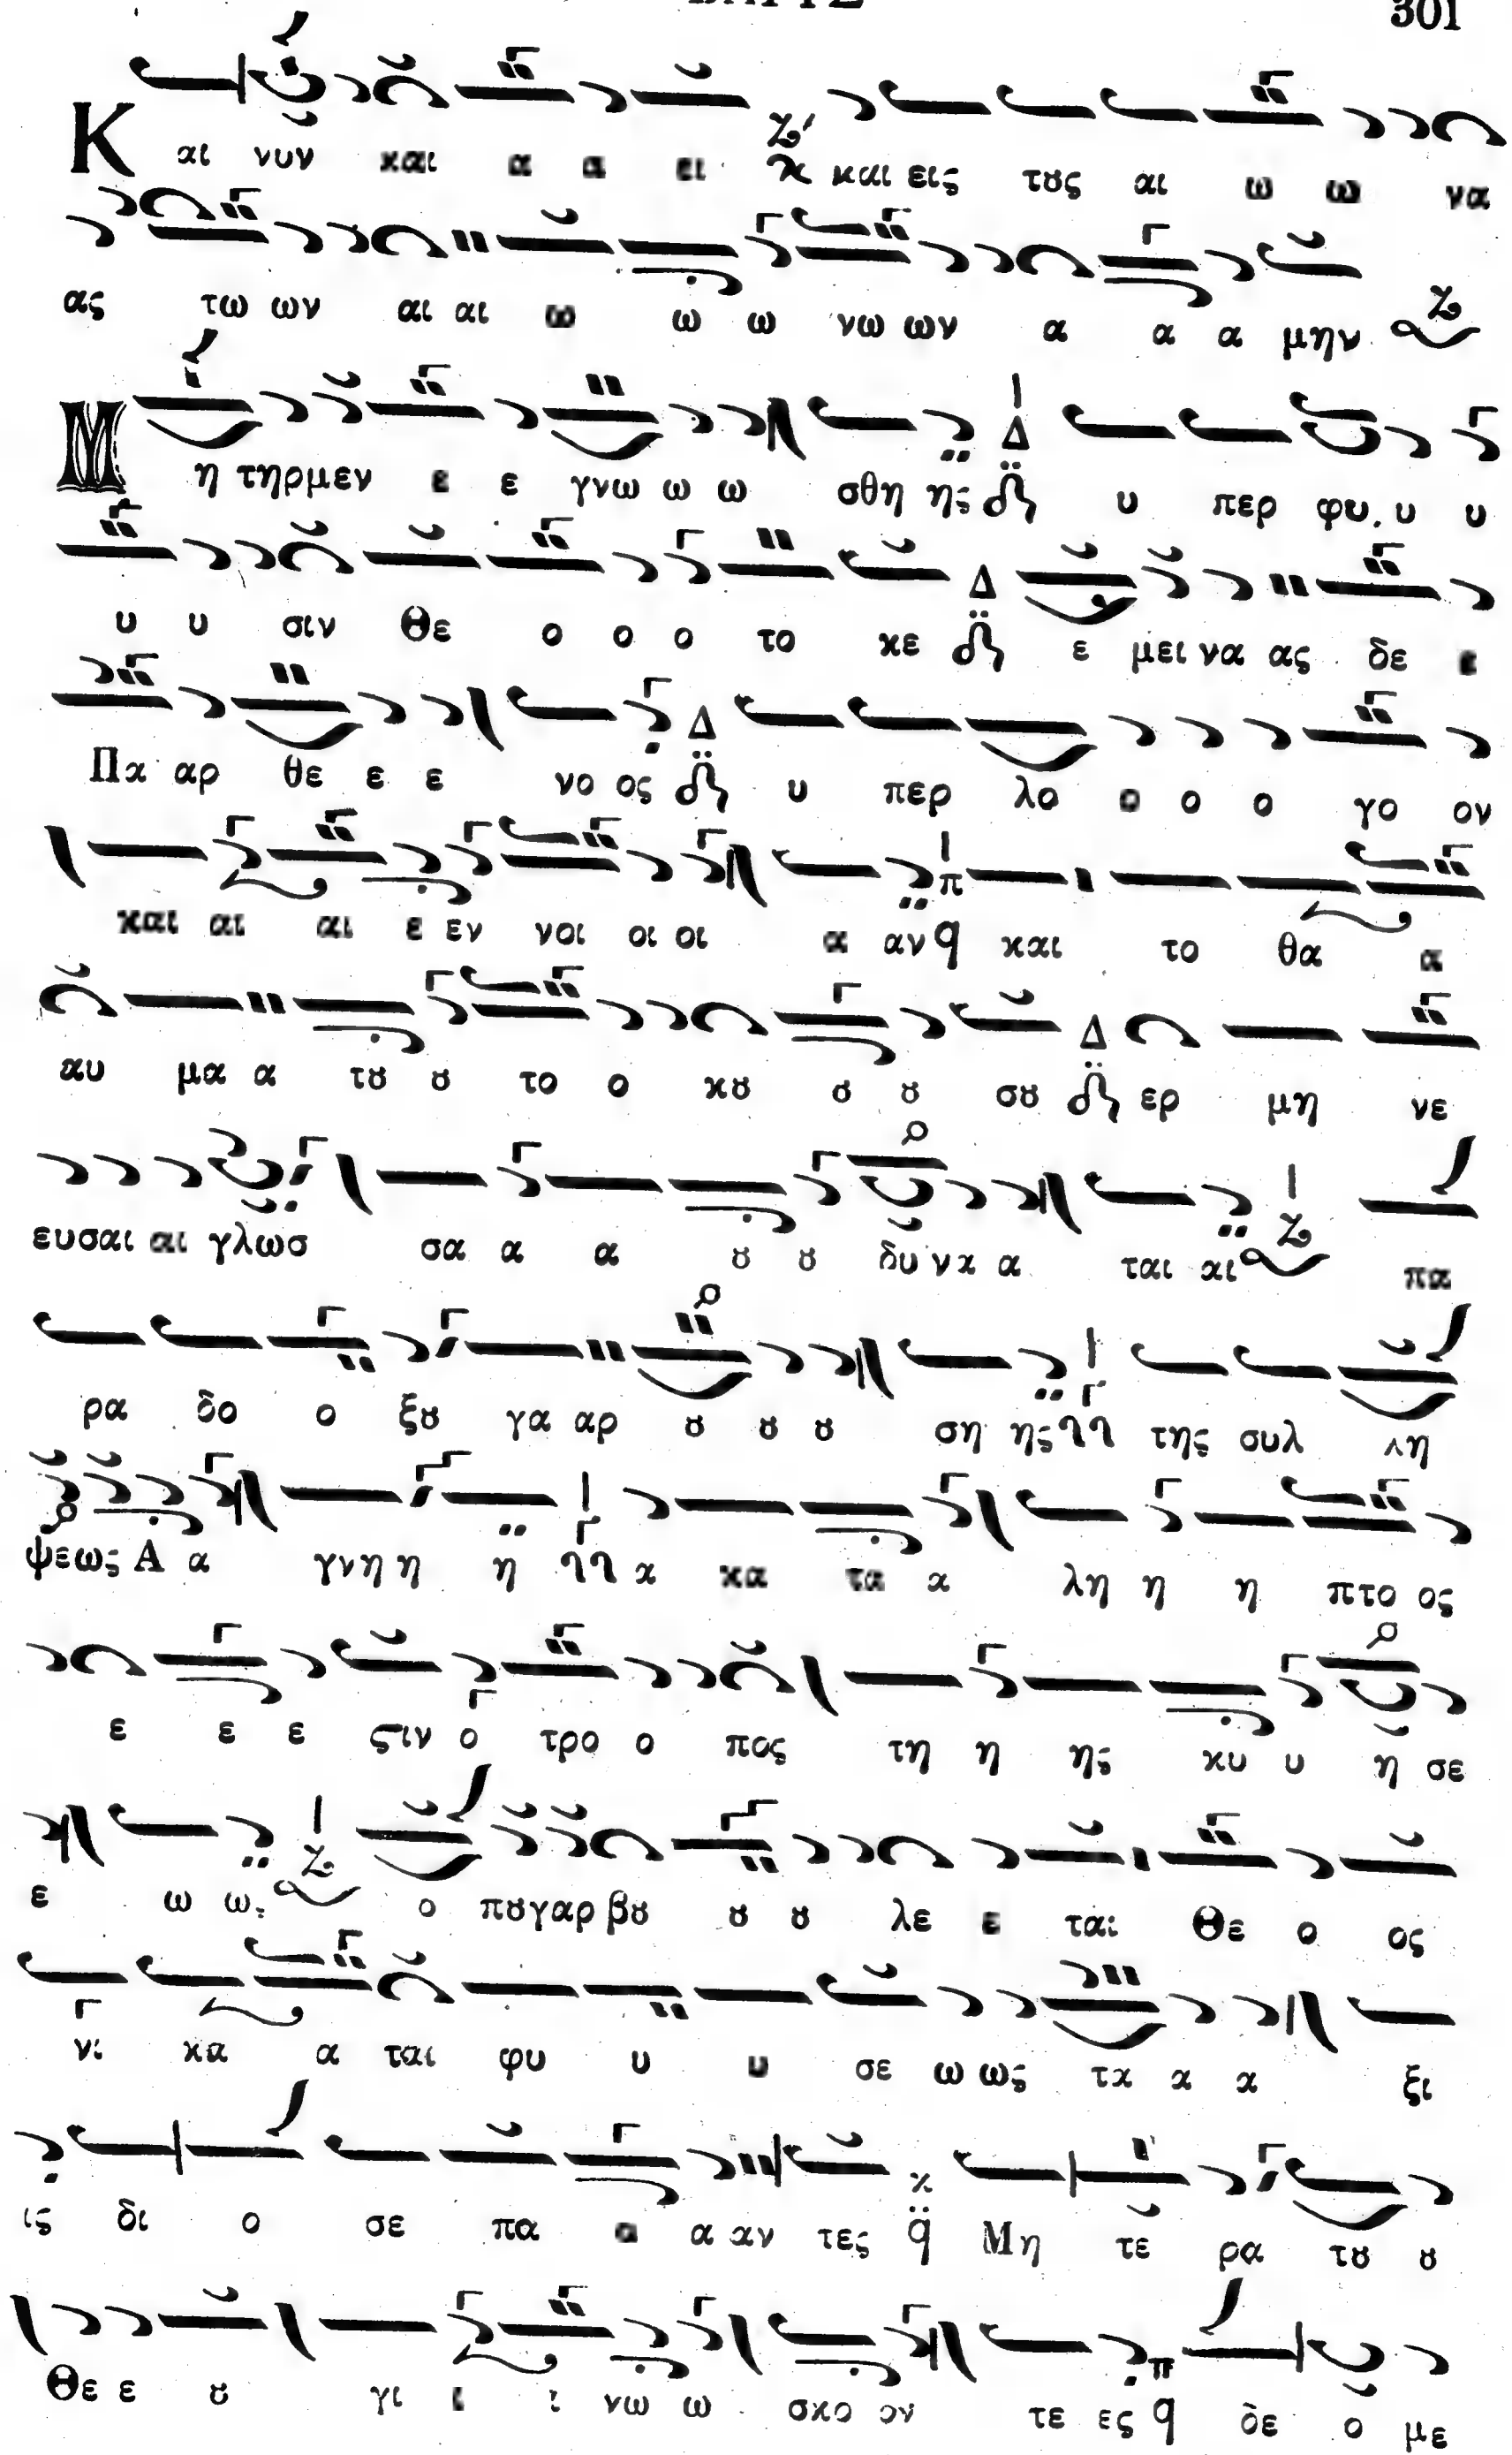 301
Και νυν και α α ει και εις τȣς αι ω ω να
ας τω ων αι αι ω ω ω νω ων α α α μην
Μη τηρμεν ε ε γνω ω ω σθη ης υ περ φυ υ υ
υ υ σιν Θε ο ο ο το κε ε μει να ας δε ε
Πα αρ θε ε ε νο ος υ περ λο ο ο ο γο ον
και αι αι ε εν νοι οι οι α αν και το θα α
αυ μα α τȣ ȣ το ο κȣ ȣ ȣ σȣ ερ μη νε
ευσαι αι γλωσ σα α α ȣ ȣ δυ να α ται αι πα
ρα δο ο ξȣ γα αρ ȣ ȣ ȣ ση ης της συλ λη
ψεως Α α γνη η η α κα τα α λη η η πτο ος
ε ε ε ϛιν ο τρο ο πος τη η ης κυ υ η σε
ε ω ως ο πȣγαρ βȣ ȣ ȣ λε ε ται Θε ο ος
νι κα α ται φυ υ υ σε ω ως τα α α ξι
ις δι ο σε πα α α αν τες Μη τε ρα τȣ ȣ
Θε ε ȣ γι ι ι νω ω σκο ον τε ες δε ο με